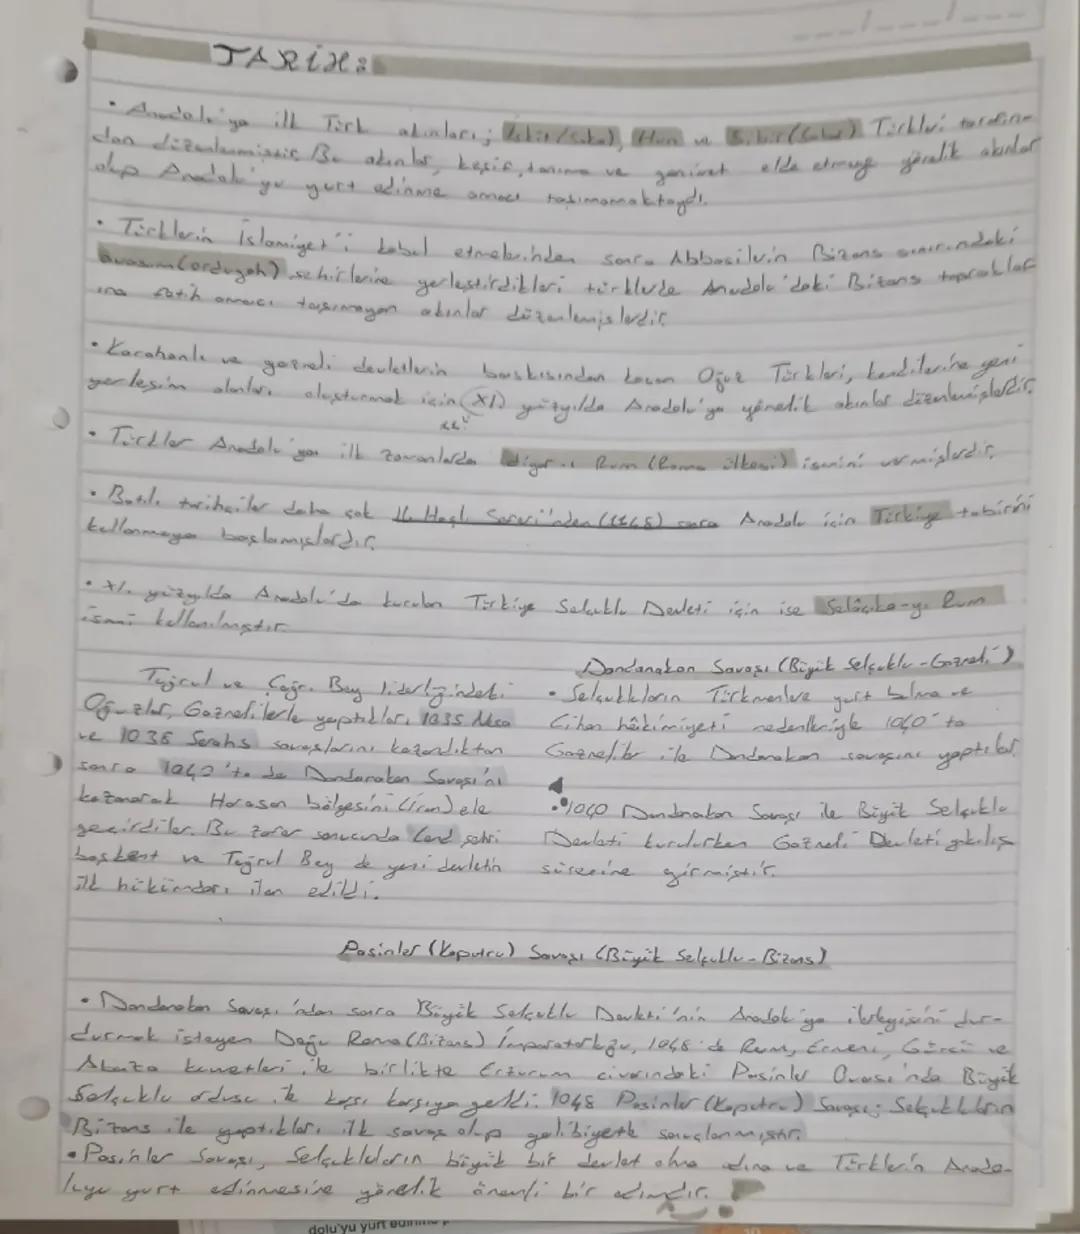 TARİH:
• Anadolu'ya ilk Türk akınları; İskit/Saka), Hun ve Sibir(Sabar) Türkleri tarafın-
dan düzenlenmiştir. Bu akınlar, keşif, tanıma ve ganimet elde etmeye yönelik akınlar
olup Anadolu'yu yurt edinme amacı taşımamaktaydı.
• Türklerin İslamiyet'i kabul etmelerinden sonra Abbasilerin Bizans sınırındaki
avasım(ordugah) şehirlerine yerleştirdikleri türklerde Anadolu'daki Bizans toprakları-
na fetih amacı taşımayan akınlar düzenlemişlerdir.
• Karahanlı ve gazneli devletlerin baskısından kaçan Oğuz Türkleri, kendilerine yeni
yerleşim alanları oluşturmak için (XI) yüzyılda Anadolu'ya yönelik akınlar düzenlemişlerdir.
• Türkler Anadolu'ya ilk zamanlarda diyar-ı Rum (Roma ülkesi) ismini vermişlerdir.
• Batılı tarihçiler daha çok II. Haçlı Seferi'nden (1148) sonra Anadolu için Türkiye tabirini
kullanmaya başlamışlardır.
• XI. yüzyılda Anadolu'da kurulan Türkiye Selçuklu Devleti için ise Selâçika-yı Rum
ismi kullanılmıştır.
Tuğrul ve Çağrı Bey liderliğindeki
Oğuzlar, Gaznelilerle yaptıkları 1035 Nesa
ve 1038 Serahs savaşlarını kazandıktan
sonra 1040'ta da Dandanakan Savaşı'nı
kazanarak Horasan bölgesini (İran) ele
geçirdiler. Bu zafer sonucunda şehri
başkent ve Tuğrul Bey de yeni devletin
ilk hükümdarı ilan edildi.
Dandanakan Savaşı (Büyük Selçuklu-Gazneli)
• Selçukluların Türkmenlere yurt bulma ve
Cihan hâkimiyeti nedenleriyle 1040'ta
Gazneliler ile Dandanakan savaşını yaptılar.
• 1040 Dandanakan Savaşı ile Büyük Selçuklu
Devleti kurulurken Gazneli Devleti yıkılış
sürecine girmiştir.
Pasinler (Kapetru) Savaşı (Büyük Selçuklu-Bizans)
• Dandanakan Savaşı'ndan sonra Büyük Selçuklu Devleti'nin Anadolu'ya ilerleyişini dur-
durmak isteyen Doğu Roma(Bizans) İmparatorluğu, 1048'de Rum, Ermeni, Gürcü ve
Abaza kuvvetleri ile birlikte Erzurum civarındaki Pasinler Ovası'nda Büyük
Selçuklu ordusu ile karşı karşıya geldi. 1048 Pasinler (Kapetru) Savaşı; Selçukluların
Bizans ile yaptıkları ilk savaş olup galibiyetle sonuçlanmıştır.
• Pasinler Savaşı, Selçukluların büyük bir devlet olma adına ve Türklerin Anado-
luyu yurt edinmesine yönelik önemli bir adımdır.